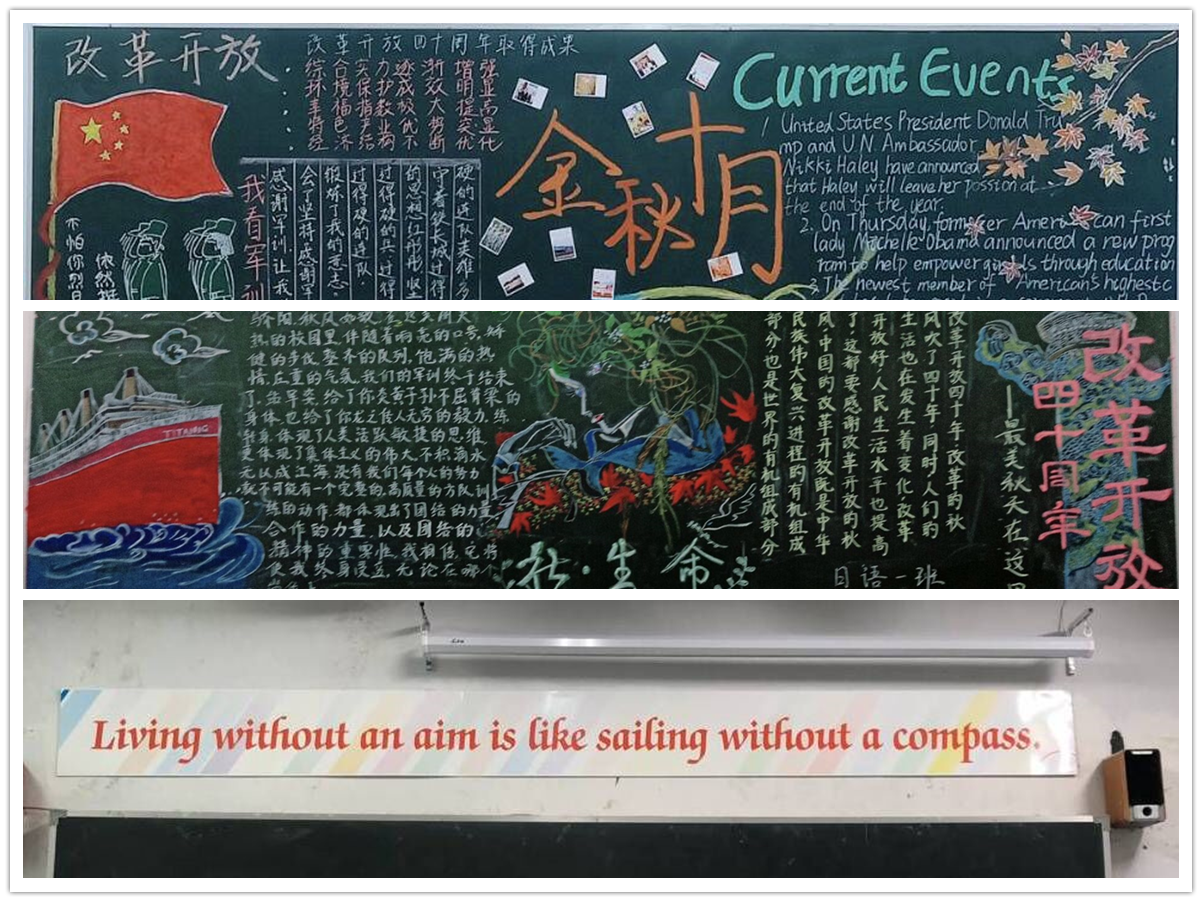 改革开放
改革开放四十周年取得成果
综合实力逐渐增强
环境保护成效明显
幸福指数极大提高
特色产业优势突显
经济结构不断优化
我看军训
感谢军训,让我
会了坚持感谢军
锻炼了我的意志
过得硬的连队.
过得硬的兵.过得
的思想红彤彤.坚
守着铁长城过得
硬的连队英雄多
不怕你烈日
依然挺
金秋十月
Current Events
1 United States President Donald Tru
mp and U.N. Ambassador
Nikki Haley have announced
that Haley will leave her possion at
the end of the year.
2. On Thursday, former American first
lady Michelle Obama announced a new prog
ram to help empower girls through education
3. The newest member of American's highest c
TITANIC
热的校园里.伴随着响亮的口号.矫
健的手伐.整齐的队列.饱满的热
情.庄重的气氛.我们的军训终于结束
了.当军奖.给了你炎黄子孙不屈脊梁的
身体.也给了你龙之传人无穷的毅力.练
体现了人类活跃敏捷的思维
更体现了集体主义的伟大.不积滴水
无以成江海.没有我们每个人的努力
就不可能有一个完整的.高质量的方队训
练的动作.都体现出了团结的力量
合作的力量.以及团结的
精神的重要性.我相信.它将
使我终身受益.无论在哪个
秋·生命
改革开放四十年.改革的秋
风吹了四十年.同时人们的
生活也在发生着变化.改革
开放好.人民生活水平也提高
了.这都要感谢改革开放的秋
风.中国的改革开放既是中华
民族伟大复兴进程的有机组成
部分也是世界的有机组成部分
日语一班
——最美秋天在这里
改革开放
四十周年
Living without an aim is like sailing without a compass.